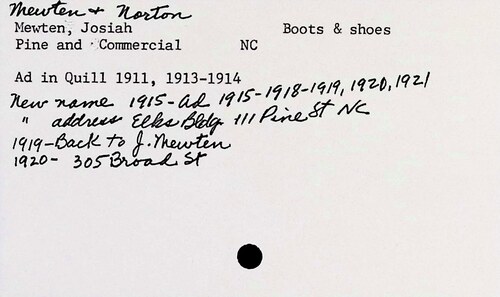 Mewten & Norton
Mewten, Josiah Boots & shoes
Pine and Commercial NC
Ad in Quill 1911, 1913-1914
New name 1915-ad 1915-1918-1919, 1920, 1921
" address Elks Bldg. 111 Pine St NC
1919-Back to J. Mewten
1920- 305 Broad St